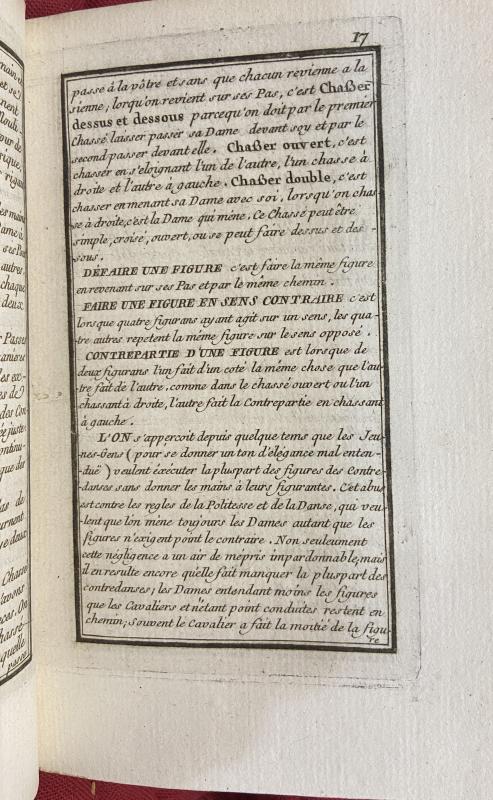 17
passe à la vôtre et sans que chacun revienne a la
sienne; lorqu'on revient sur ses Pas, c'est Chaßer
dessus et dessous parcequ'on doit par le premier
Chassé laisser passer sa Dame devant soy et par le
second passer devant elle. Chaßer ouvert, c'est
chasser en s'eloignant l'un de l'autre, l'un chasse à
droite et l'autre a gauche. Chaßer double, c'est
chasser en menant sa Dame avec soi, lorsqu'on chas-
se à droite, c'est la Dame qui méne. Ce Chassé peut être
simple, croisé, ouvert, ou se peut faire dessus et des-
sous.
DÉFAIRE UNE FIGURE c'est faire la même figure
en revenant sur ses Pas et par le même chemin.
FAIRE UNE FIGURE EN SENS CONTRAIRE c'est
lorsque quatre figurans ayant agit sur un sens, les qua-
tre autres repetent la même figure sur le sens opposé.
CONTREPARTIE D'UNE FIGURE est lorsque de
deux figurans l'un fait d'un coté la même chose que l'au-
tre fait de l'autre, comme dans le chassé ouvert ou l'un
chassant à droite, l'autre fait la Contrepartie en chassant
à gauche.
L'ON s'apperçoit depuis quelque tems que les Jeu-
nes-Gens (pour se donner un ton d'élégance mal enten-
duë) veulent éxécuter la pluspart des figures des Contre-
danses sans donner les mains à leurs figurantes. Cet abus
est contre les regles de la Politesse et de la Danse, qui veu-
lent que l'on méne toujours les Dames autant que les
figures n'exigent point le contraire. Non seuleument
cette négligence a un air de mépris impardonnable, mais
il en resulte encore qu'elle fait manquer la pluspart des
contredanses; les Dames entendant moins les figures
que les Cavaliers et n'étant point conduites restent en
chemin; Souvent le Cavalier a fait la moitié de la figu-
re